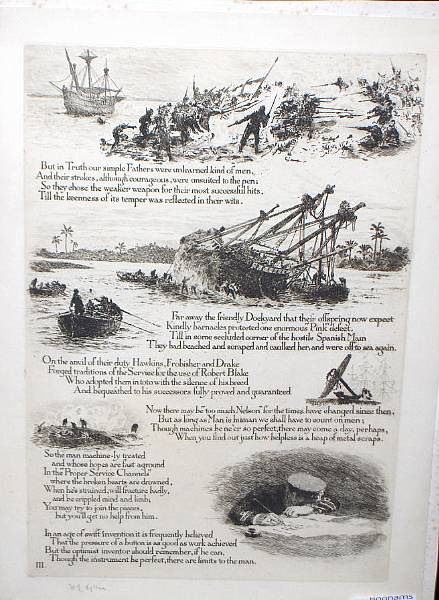 But in Truth our simple Fathers were unlearned kind of men,
And their strokes, although courageous, were unsuited to the pen;
So they chose the weaker weapon for their most successful hits,
Till the keenness of its temper was reflected in their wits.
Far away the friendly Dockyard that their offspring now expect
Kindly barnacles protected one enormous "Pink" defect,
Till in some secluded corner of the hostile Spanish Main
They had beached and scraped and caulked her, and were off to sea again.
On the anvil of their duty Hawkins, Frobisher and Drake
Forged traditions of the Service for the use of Robert Blake
Who adopted them in toto with the silence of his breed
And bequeathed to his successors fully proved and guaranteed
Now there may be "too much Nelson" for the times have changed since then,
But as long as Man is human we shall have to count on men;
Though machines be ne'er so perfect, there may come a day, perhaps,
When you find out just how helpless is a heap of metal scraps.
So the man machine-ly treated
and whose hopes are fast aground
In the "Proper Service Channels"
where the broken hearts are drowned,
When he's strained, will fracture badly,
and be crippled mind and limb,
You may try to join the pieces,
but you'll get no help from him.
In an age of swift Invention it is frequently believed
That the pressure of a button is as good as work achieved
But the optimist inventor should remember, if he can,
Though the instrument be perfect, there are limits to the man.
III